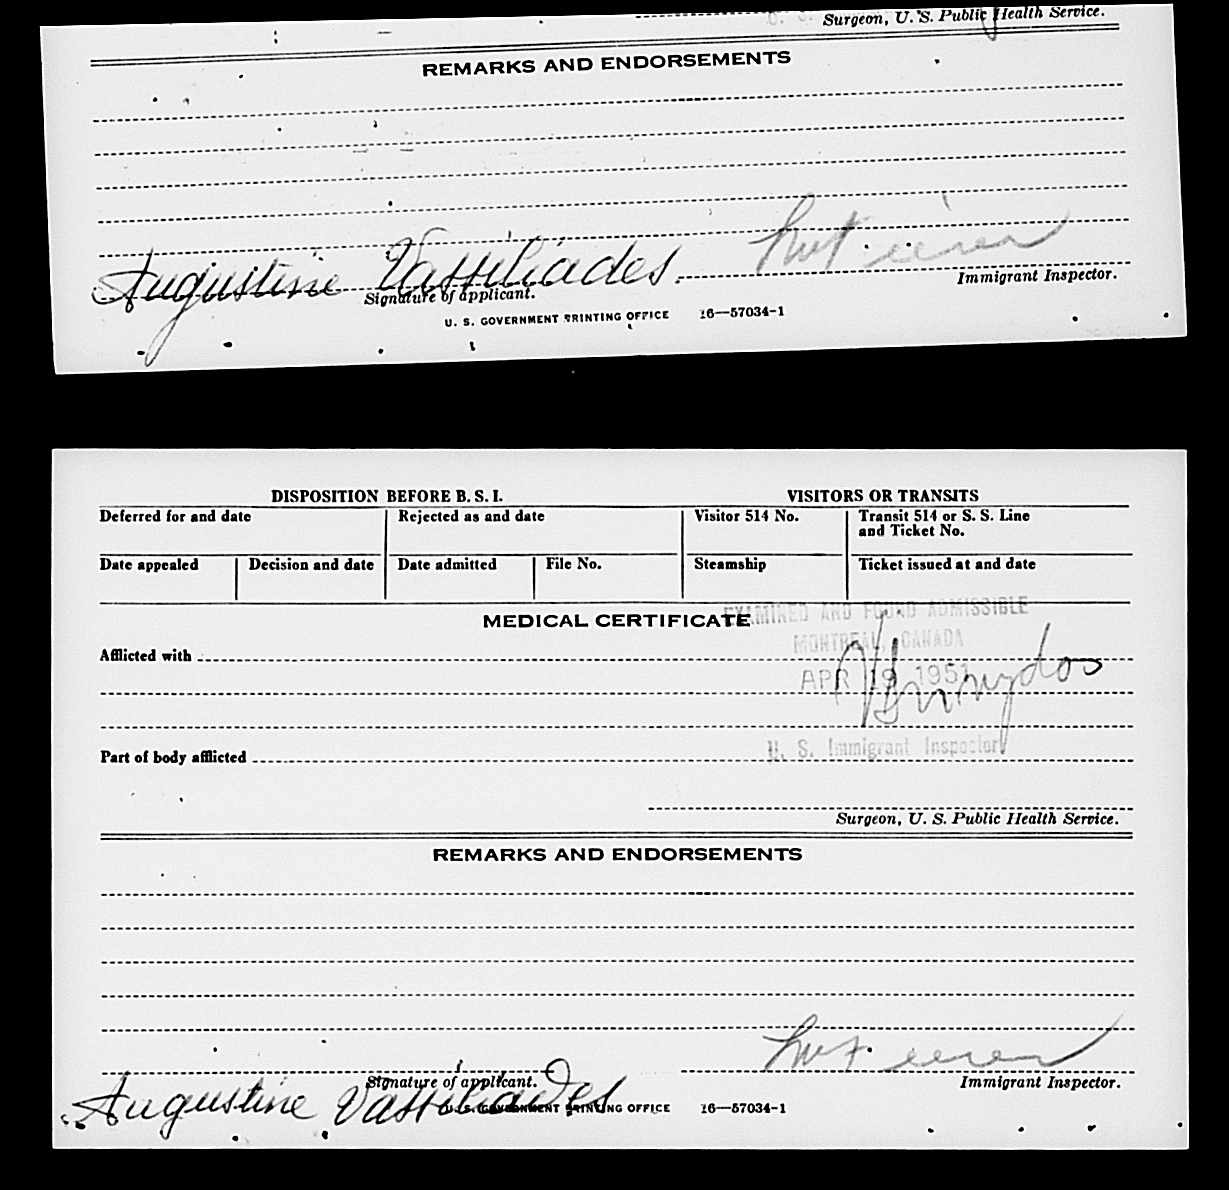 Surgeon, U. S. Public Health Service.
REMARKS AND ENDORSEMENTS
Augustine Vassiliades.
Signature of applicant.
Immigrant Inspector.
U. S. GOVERNMENT PRINTING OFFICE 16—57034-1
DISPOSITION BEFORE B. S. I. VISITORS OR TRANSITS
Deferred for and date Rejected as and date Visitor 514 No. Transit 514 or S. S. Line
and Ticket No.
Date appealed Decision and date Date admitted File No. Steamship Ticket issued at and date
EXAMINED AND FOUND ADMISSIBLE
MEDICAL CERTIFICATE
MONTREAL, CANADA
Afflicted with
APR 19 1951
U. S. Immigrant Inspector
Part of body afflicted
Surgeon, U. S. Public Health Service.
REMARKS AND ENDORSEMENTS
Signature of applicant.
Immigrant Inspector.
Augustine Vassiliades
U. S. GOVERNMENT PRINTING OFFICE 16—57034-1